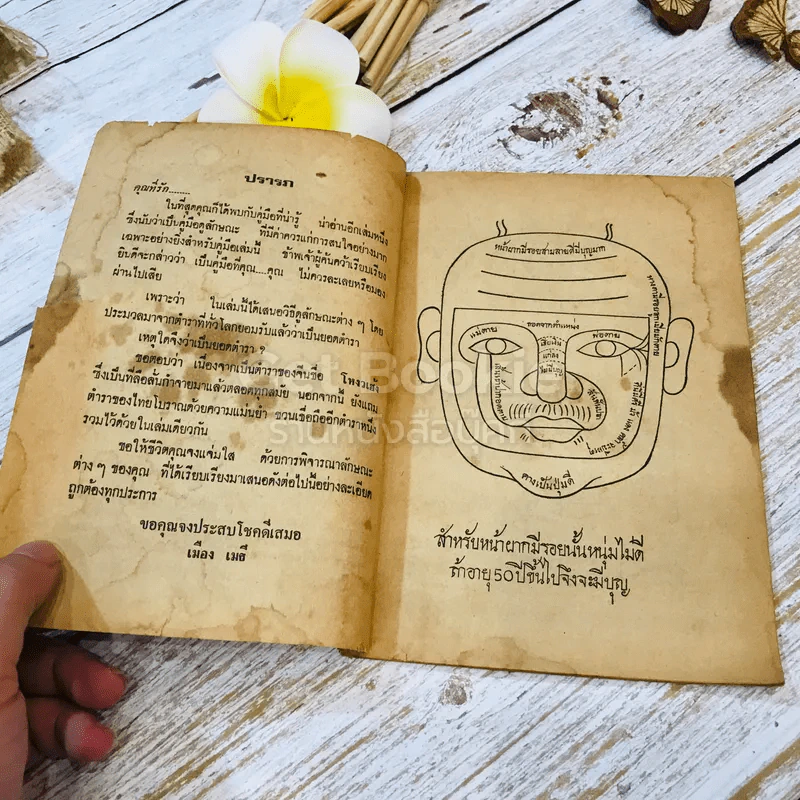 ปรารภ
คุณที่รัก........
ในที่สุดคุณก็ได้พบกับคู่มือที่น่ารู้ น่าอ่านอีกเล่มหนึ่ง
ซึ่งนับว่าเป็นคู่มือดูลักษณะ ที่มีค่าควรแก่การสนใจอย่างมาก
เฉพาะอย่างยิ่งสำหรับคู่มือเล่มนี้ ข้าพเจ้าผู้ค้นคว้าเรียบเรียง
ยินดีจะกล่าวว่า เป็นคู่มือที่คุณ....คุณ ไม่ควรละเลยหรือมอง
ผ่านไปเสีย
เพราะว่า ในเล่มนี้ได้เสนอวิธีดูลักษณะต่าง ๆ โดย
ประมวลมาจากตำราที่ทั่วโลกยอมรับแล้วว่าเป็นยอดตำรา
เหตุใดจึงว่าเป็นยอดตำรา ?
ขอตอบว่า เนื่องจากเป็นตำราของจีนชื่อ โหงวเฮ้ง
ซึ่งเป็นที่ลือลั่นกำจายมาแล้วตลอดทุกสมัย นอกจากนี้ ยังแถม
ตำราของไทยโบราณด้วยความแม่นยำ ชวนเชื่อถืออีกตำราหนึ่ง
รวมไว้ด้วยในเล่มเดียวกัน
ขอให้ชีวิตคุณจงแจ่มใส ด้วยการพิจารณาลักษณะ
ต่าง ๆ ของคุณ ที่ได้เรียบเรียงมาเสนอดังต่อไปนี้อย่างละเอียด
ถูกต้องทุกประการ
ขอคุณจงประสบโชคดีเสมอ
เมือง เมธี
หน้าผากมีรอยสามลายดีมีบุญมาก
แม่ตาย
พ่อตาย
คางเป็นปุ่มดี
สำหรับหน้าผากมีรอยนั้นหนุ่มไม่ดี
ถ้าอายุ 50 ปีขึ้นไปจึงจะมีบุญ